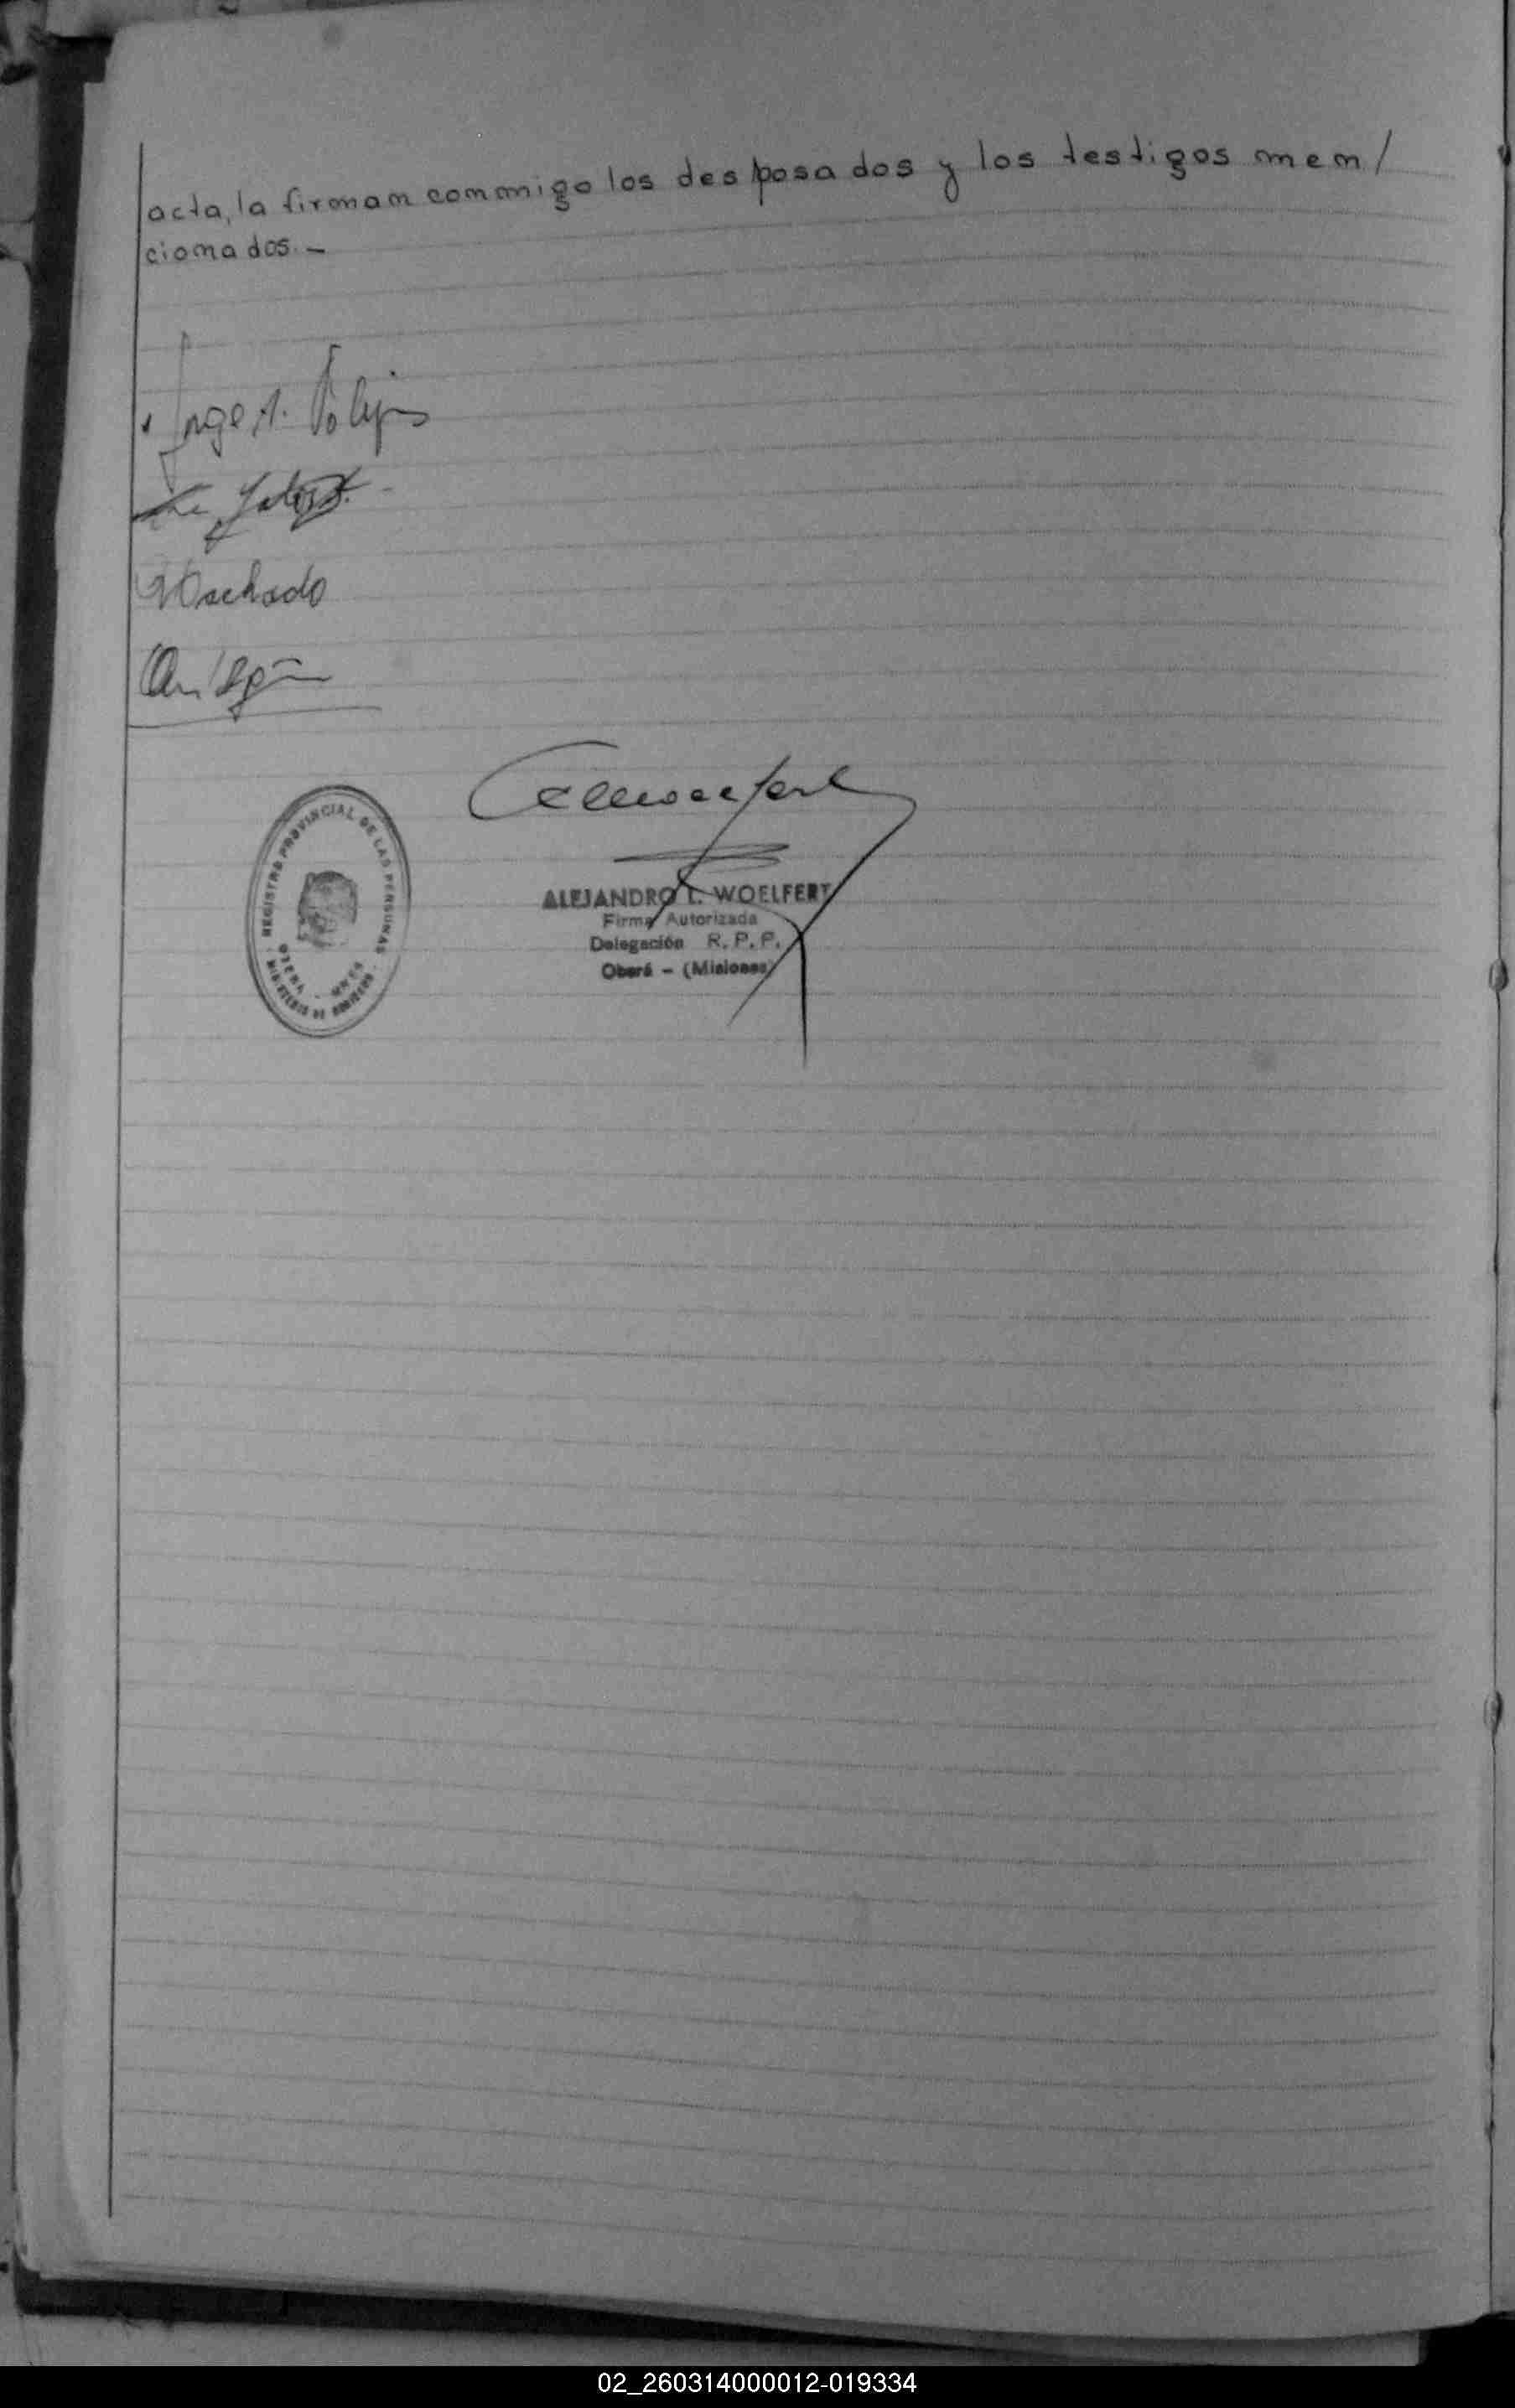 acta, la firman conmigo los desposados y los testigos men/
cionados.-
Jorge A.
Machado
REGISTRO PROVINCIAL DE LAS PERSONAS
OBERA - MNES
MINISTERIO DE GOBIERNO
ALEJANDRO L. WOELFERT
Firma Autorizada
Delegación R. P. P.
Oberá - (Misiones)
02_260314000012-019334